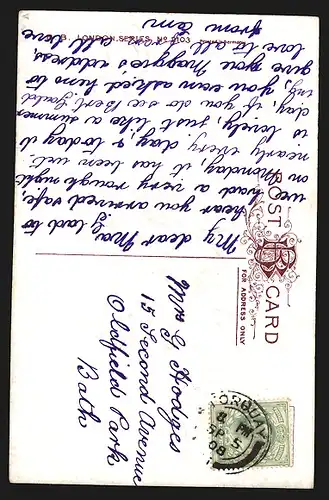 B. LONDON SERIES No 2103
POST CARD
FOR ADDRESS ONLY
My dear Ma
glad to
hear you arrived safe,
we had a very rough night
on Monday, it has been wet
nearly every day & today it
is lovely, just like a summers
day, if you do see Bert Gould
you can ask him to
give you Maggie's address,
love to all
from Em
TORQUAY
8 PM
SP 5
08
Mrs G Hodges
15 Second Avenue
Oldfield Park
Bath